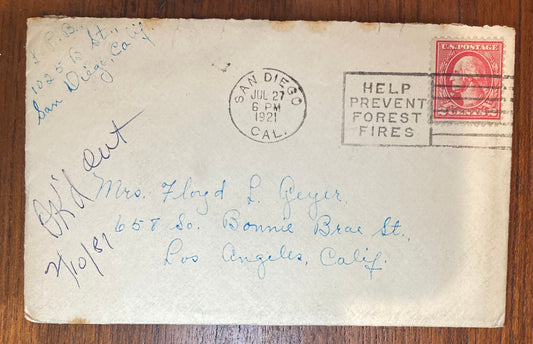 L. P. B.,
1025 B St.,
San Diego, Calif
SAN DIEGO
JUL 27
6 PM
1921
CAL.
HELP
PREVENT
FOREST
FIRES
U.S. POSTAGE
2 CENTS 2
OK'd out
2/10/81
Mrs. Floyd L. Geyer,
658 So. Bonnie Brae St.,
Los Angeles, Calif.